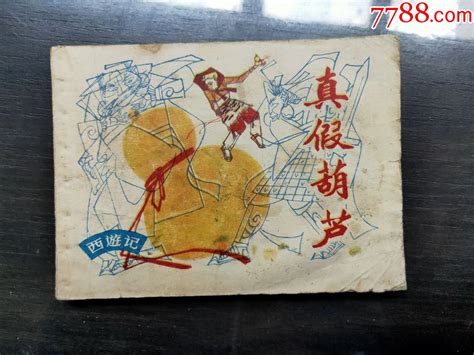 7788.com
真假葫芦
西遊记